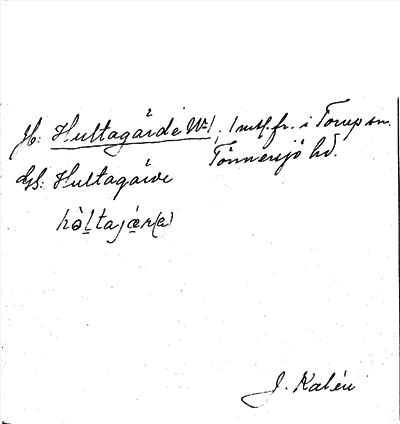 Jb: Hultagärde No 1, 1 mtl. fr. i Torup sn.
Tönnersjö hd.
GS: Hultagärde
hòltajær(a)
J. Kalén